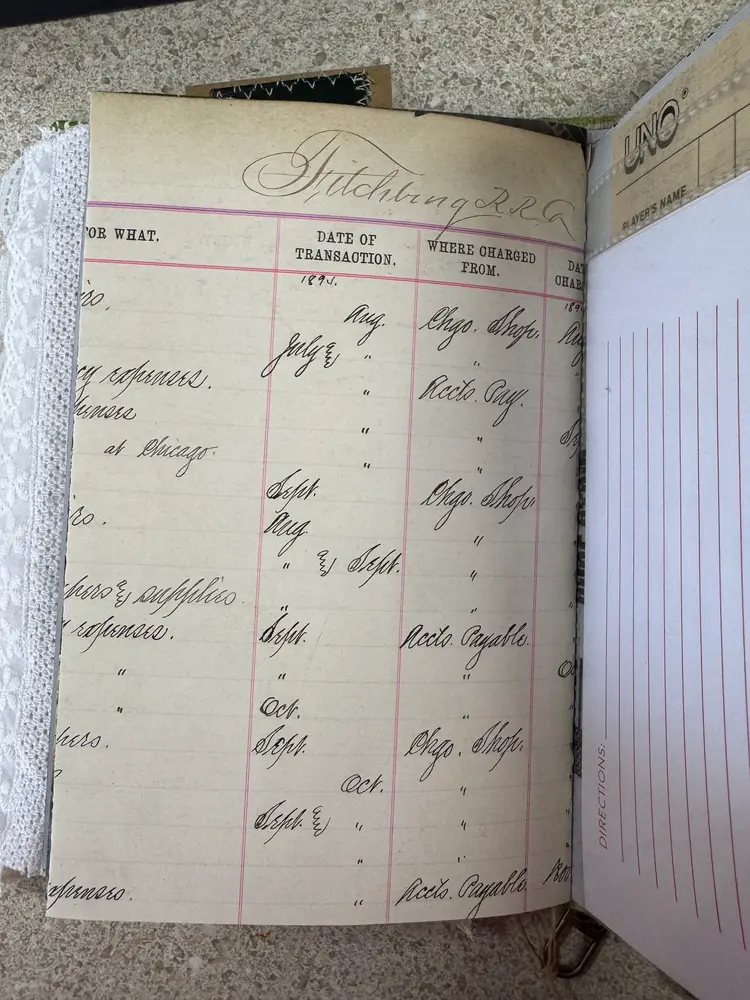 Fitchburg R.R. Co
FOR WHAT. DATE OF TRANSACTION. WHERE CHARGED FROM. DATE CHAR
1894. 189
Aug. Chgo. Shop.
July & "
expenses. " Accts. Pay.
" "
at Chicago. " "
Sept. Chgo. Shop.
Aug "
" & Sept. "
& supplies " "
expenses. Sept. Accts. Payable.
" " "
" Oct. "
Sept. Chgo. Shop.
Oct. "
Sept. & " "
" "
expenses. " Accts. Payable.
UNO®
PLAYER'S NAME
DIRECTIONS: